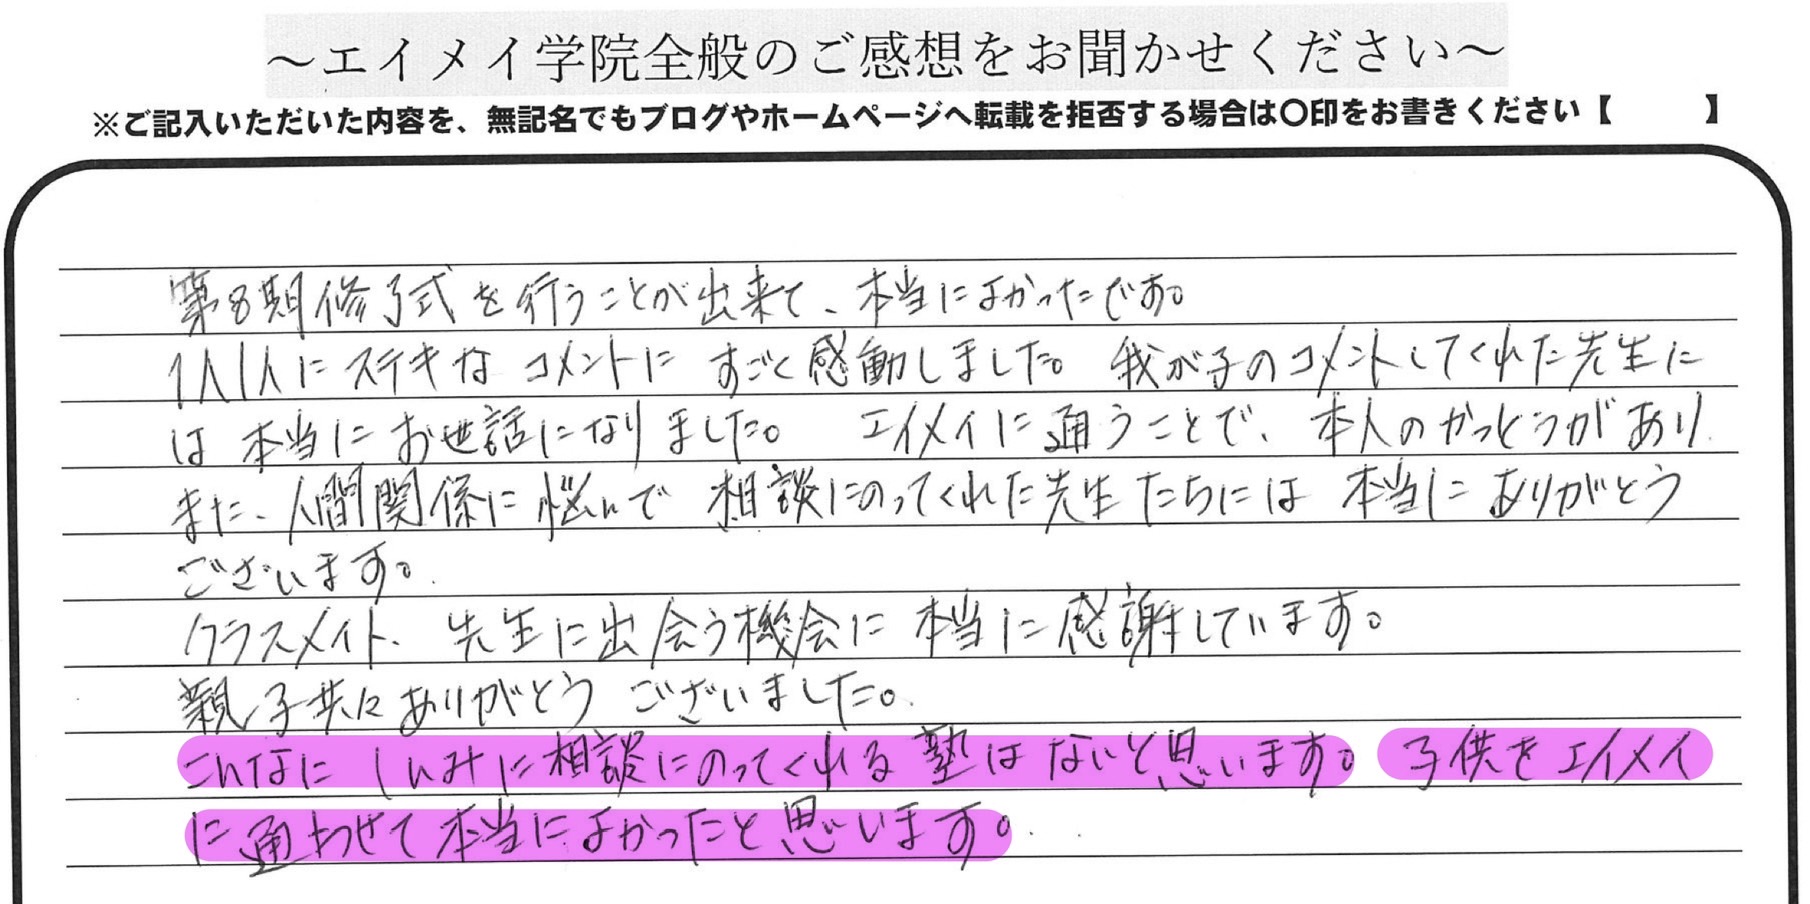 ～エイメイ学院全般のご感想をお聞かせください～
※ご記入いただいた内容を、無記名でもブログやホームページへ転載を拒否する場合は〇印をお書きください【　　】
第8期修了式を行うことが出来て、本当によかったです。
1人1人にステキなコメントに すごく感動しました。 我が子のコメントしてくれた先生に
は 本当に お世話になりました。 エイメイに通うことで、本人のかっとうがあり
また、人間関係に悩んで 相談にのってくれた先生たちには 本当に ありがとう
ございます。
クラスメイト、先生に出会う機会に 本当に感謝しています。
親子共に ありがとう ございました。
こんなに しんみに相談にのってくれる 塾は ないと思います。 子供をエイメイ
に通わせて 本当によかったと思います。